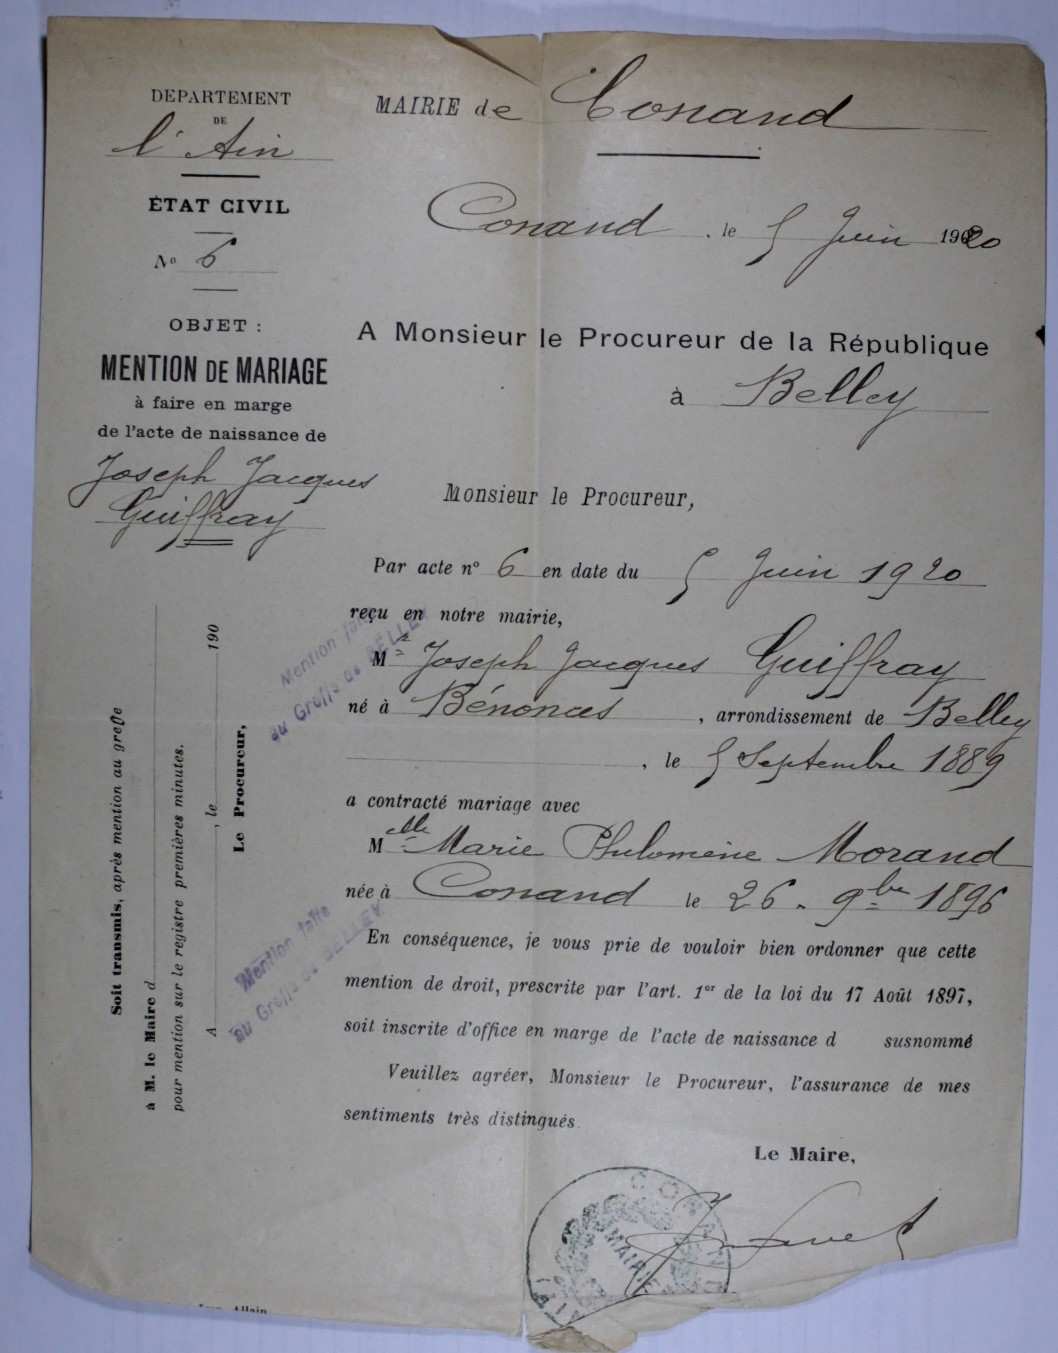 DEPARTEMENT
DE
l'Ain
ÉTAT CIVIL
No 6
OBJET :
MENTION DE MARIAGE
à faire en marge
de l'acte de naissance de
Joseph Jacques
Guiffray
MAIRIE de Conand
Conand, le 5 Juin 1920
A Monsieur le Procureur de la République
à Belley
Monsieur le Procureur,
Par acte no 6 en date du 5 Juin 1920
reçu en notre mairie,
Mr Joseph Jacques Guiffray
né à Bénonces, arrondissement de Belley
, le 5 Septembre 1889
a contracté mariage avec
Melle Marie Philomène Morand
née à Conand le 26. 9bre 1896
En conséquence, je vous prie de vouloir bien ordonner que cette
mention de droit, prescrite par l'art. 1er de la loi du 17 Août 1897,
soit inscrite d'office en marge de l'acte de naissance d susnommé
Veuillez agréer, Monsieur le Procureur, l'assurance de mes
sentiments très distingués.
Le Maire,
CONAND
MAIRIE
AIN
Soit transmis, après mention au greffe
à M. le Maire d
pour mention sur le registre premières minutes.
A , le 190
Le Procureur,
Mention faite
au Greffe de BELLEY
Mention faite
au Greffe de BELLEY
Imp. Allain